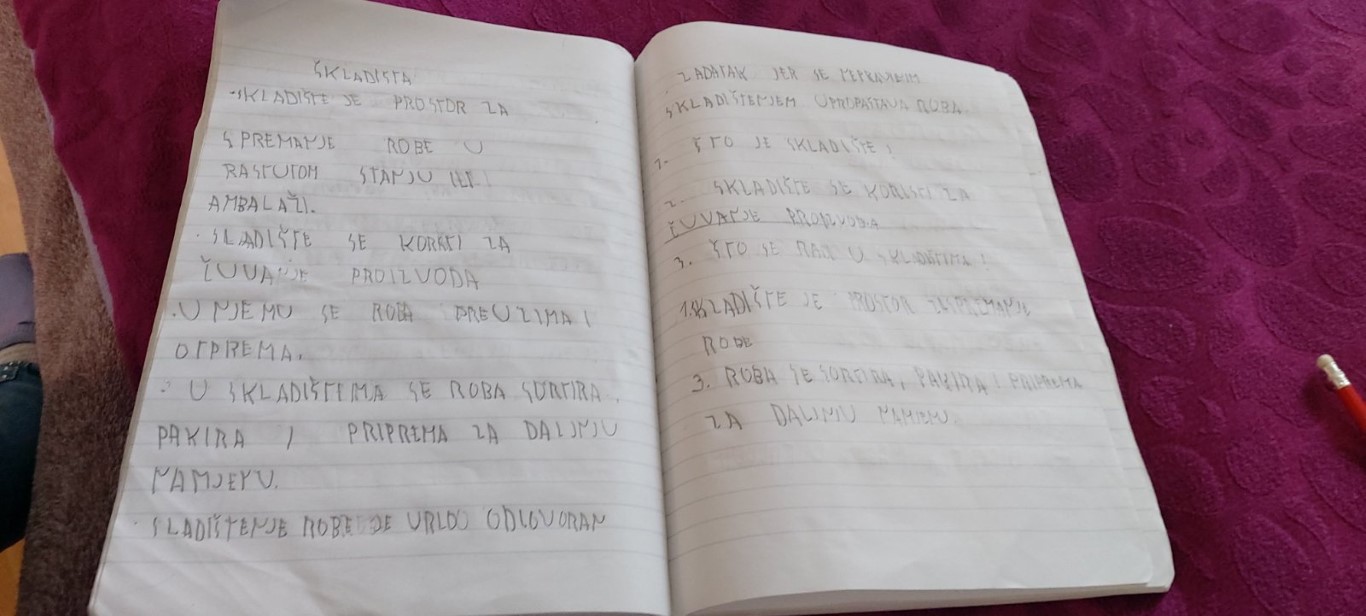 SKLADIŠTA
·SKLADIŠTE JE PROSTOR ZA
SPREMANJE ROBE U
RASUTOM STANJU ILI
AMBALAŽI.
· SLADIŠTE SE KORISTI ZA
ČUVANJE PROIZVODA
·U NJEMU SE ROBA PREUZIMA I
OTPREMA.
· U SKLADIŠTIMA SE ROBA SORTIRA,
PAKIRA I PRIPREMA ZA DALJNJU
NAMJENU.
· SLADIŠTENJE ROBE JE VRLO ODGOVORAN
ZADATAK JER SE
SKLADIŠTENJEM UPROPAŠTAVA ROBA.
1. ŠTO JE SKLADIŠTE?
2. SKLADIŠTE SE KORISTI ZA
ČUVANJE PROIZVODA
3. ŠTO SE RADI U SKLADIŠTIMA?
1. SKLADIŠTE JE PROSTOR ZA SPREMANJE
ROBE
3. ROBA SE SORTIRA, PAKIRA I PRIPREMA
ZA DALJNJU NAMJENU